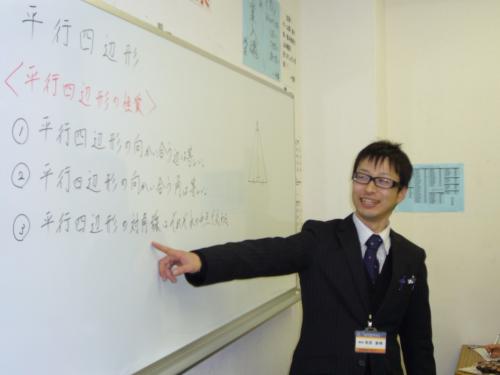 平行四辺形
〈平行四辺形の性質〉
① 平行四辺形の向かい合う辺は等しい。
② 平行四辺形の向かい合う角は等しい。
③ 平行四辺形の対角線はそれぞれの中点で交わる